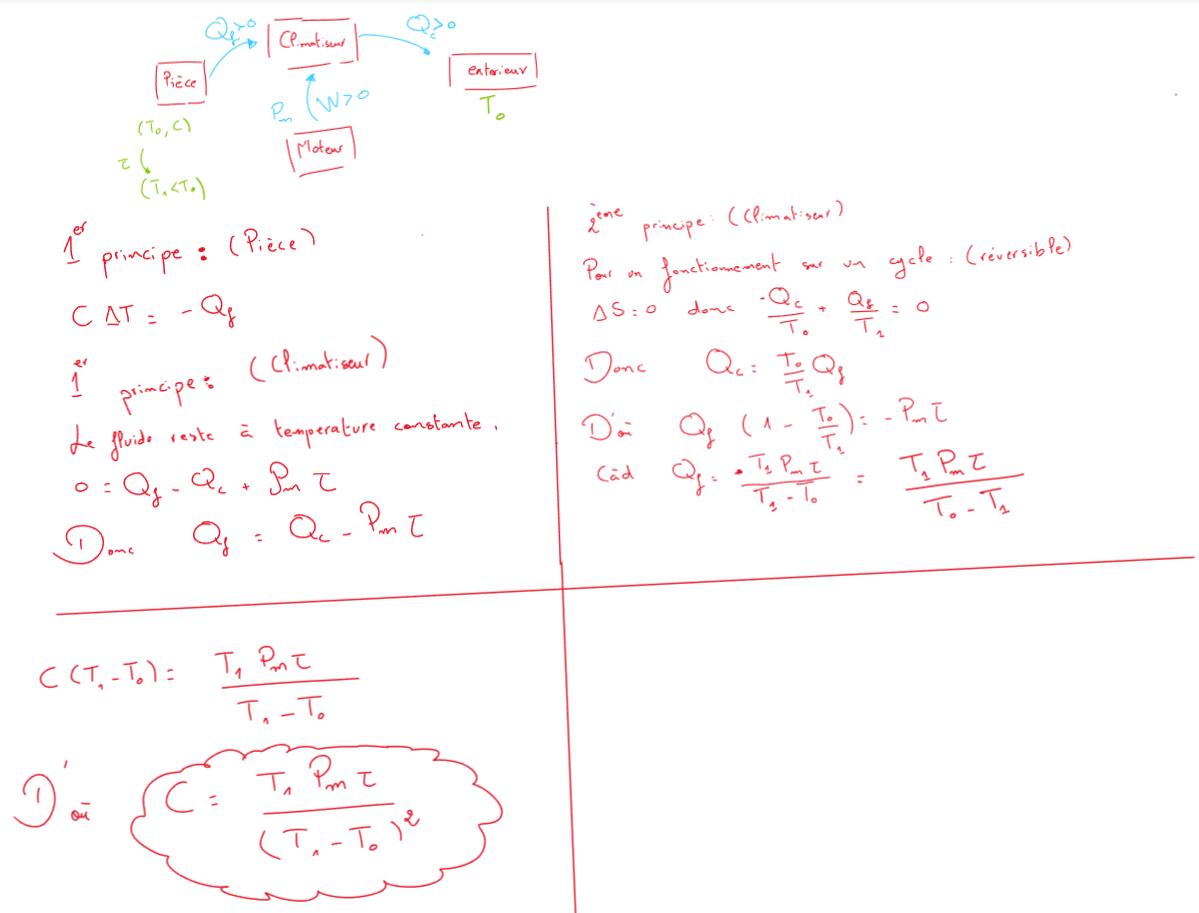 Q_f>0
Climatiseur
Q_c>0
Pièce
exterieur
P_m
W>0
T_0
(T_0, C)
Moteur
τ
(T_1<T_0)
1er principe : (Pièce)
C ΔT = - Q_f
1er principe : (Climatiseur)
Le fluide reste à temperature constante.
0 = Q_f - Q_c + P_m τ
Donc Q_f = Q_c - P_m τ
2ème principe : (Climatiseur)
Pour un fonctionnement sur un cycle : (réversible)
ΔS = 0 donc -Q_c/T_0 + Q_f/T_1 = 0
Donc Q_c = T_0/T_1 Q_f
D'où Q_f (1 - T_0/T_1) = - P_m τ
Càd Q_f = - T_1 P_m τ/(T_1 - T_0) = T_1 P_m τ/(T_0 - T_1)
C (T_1 - T_0) = T_1 P_m τ/(T_1 - T_0)
D'où C = T_1 P_m τ/(T_1 - T_0)²